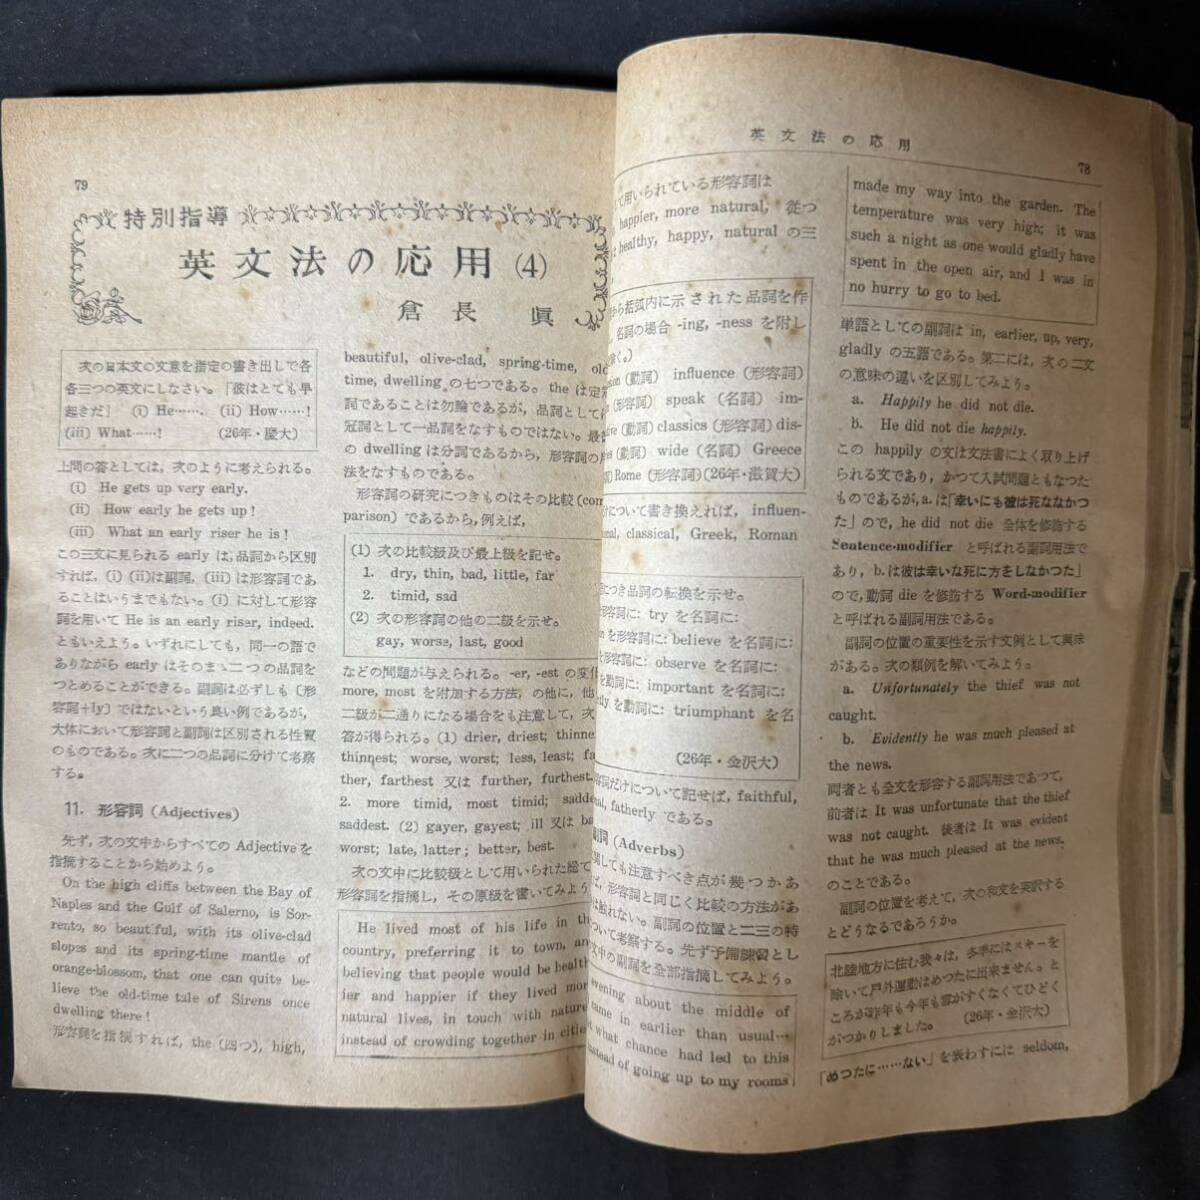 79
特別指導
英文法の応用 (4)
倉長 眞
次の日本文の文意を指定の書き出しで各
各三つの英文にしなさい。「彼はとても早
起きだ」 (i) He……. (ii) How……!
(iii) What……! (26年・慶大)
上問の答としては、次のように考えられる。
(i) He gets up very early.
(ii) How early he gets up!
(iii) What an early riser he is!
この三文に見られる early は,品詞から区別
すれば, (i) (ii)は副詞, (iii) は形容詞であ
ることはいうまでもない。(i) に対して形容
詞を用いて He is an early riser, indeed.
ともいえよう。いずれにしても, 同一の語で
ありながら early はそのまゝ二つの品詞を
つとめることができる。副詞は必ずしも〔形
容詞+ly〕ではないという良い例であるが,
大体において形容詞と副詞は区別される性質
のものである。次に二つの品詞に分けて考察
する。
11. 形容詞 (Adjectives)
先ず, 次の文中からすべての Adjective を
指摘することから始めよう。
On the high cliffs between the Bay of
Naples and the Gulf of Salerno, is Sor-
rento, so beautiful, with its olive-clad
slopes and its spring-time mantle of
orange-blossom, that one can quite be-
lieve the old-time tale of Sirens once
dwelling there!
形容詞を指摘すれば, the (四つ), high,
beautiful, olive-clad, spring-time, old
time, dwelling の七つである。the は定冠
詞であることは勿論であるが, 品詞として
冠詞として一品詞をなすものではない。最
の dwelling は分詞であるから, 形容詞の
法をなすものである。
形容詞の研究につきものはその比較 (com
parison) であるから, 例えば,
(1) 次の比較級及び最上級を記せ。
1. dry, thin, bad, little, far
2. timid, sad
(2) 次の形容詞の他の二級を示せ。
gay, worse, last, good
などの問題が与えられる。-er, -est の変化
more, most を附加する方法, の他に, 他
二級が二通りになる場合をも注意して, 次
答が得られる。(1) drier, driest; thinne
thinnest; worse, worst; less, least; fa
ther, farthest 又は further, furthest.
2. more timid, most timid; sadde
saddest. (2) gayer, gayest; ill 又は ba
worst; late, latter; better, best.
次の文中に比較級として用いられた総て
形容詞を指摘し, その原級を書いてみよう
He lived most of his life in th
country, preferring it to town, an
believing that people would be health
ier and happier if they lived mor
natural lives, in touch with nature
instead of crowding together in citie
英文法の応用
78
て用いられている形容詞は
happier, more natural, 従つ
healthy, happy, natural の三
から括弧内に示された品詞を作
名詞の場合 -ing, -ness を附し
除く。)
sion (動詞) influence (形容詞)
(形容詞) speak (名詞) im-
(動詞) classics (形容詞) dis-
(動詞) wide (名詞) Greece
Rome (形容詞) (26年・滋賀大)
について書き換えれば, influen-
nal, classical, Greek, Roman
につき品詞の転換を示せ。
形容詞に: try を名詞に:
on を形容詞に: believe を名詞に:
を形容詞に: observe を名詞に:
を動詞に: important を名詞に:
ly を動詞に: triumphant を名
(26年・金沢大)
容詞だけについて記せば, faithful,
al, fatherly である。
副詞 (Adverbs)
関しても注意すべき点が幾つかあ
ば, 形容詞と同じく比較の方法があ
は触れない。副詞の位置と二三の特
ついて考察する。先ず予備練習とし
文中の副詞を全部指摘してみよう。
evening about the middle of
came in earlier than usual…
what chance had led to this
nstead of going up to my rooms
made my way into the garden. The
temperature was very high; it was
such a night as one would gladly have
spent in the open air, and I was in
no hurry to go to bed.
単語としての副詞は in, earlier, up, very,
gladly の五語である。第二には, 次の二文
の意味の違いを区別してみよう。
a. Happily he did not die.
b. He did not die happily.
この happily の文は文法書によく取り上げ
られる文であり, かつて入試問題ともなつた
ものであるが, a. は「幸いにも彼は死ななかつ
た」ので, he did not die 全体を修飾する
Sentence-modifier と呼ばれる副詞用法で
あり, b. は彼は幸いな死に方をしなかつた」
ので, 動詞 die を修飾する Word-modifier
と呼ばれる副詞用法である。
副詞の位置の重要性を示す文例として興味
がある。次の類例を解いてみよう。
a. Unfortunately the thief was not
caught.
b. Evidently he was much pleased at
the news.
両者とも全文を形容する副詞用法であつて,
前者は It was unfortunate that the thief
was not caught. 後者は It was evident
that he was much pleased at the news.
のことである。
副詞の位置を考えて, 次の和文を英訳する
とどうなるであろうか。
北陸地方に住む我々は, 冬季にはスキーを
除いて戸外運動はめつたに出来ません。と
ころが昨年も今年も雪がすくなくてひどく
がつかりしました。 (26年・金沢大)
「めつたに……ない」を表わすには seldom,